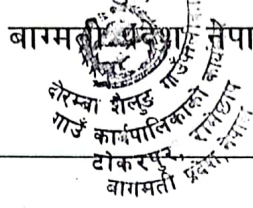 बाग्मती प्रदेश नेपा
दोरम्बा शैलुङ गाउँपा
गाउँ कार्यपालिकाको कार्या
टोकरपुर, रामेछाप
बागमती प्रदेश नेपाल